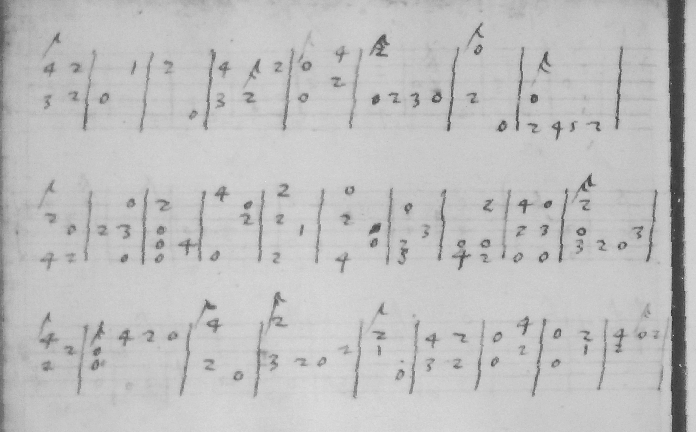 4 2 0
4 2 1 2 4 2 0
2
3 2 0 3 2 0 0 2 3 0 2 0
0 0 2 4 5 2
4 2 0
0 2 0 0 2 4 0 2
2 2 2 2
0 2 3 0 1 3 2 3 0 3
0 4 0 2 0 0 3 2 0
4 2 0 0 0 2 4 3 4 2 0 0
4 2 4
4 4 2 0 2 4 2 0 0 2 4 0 2
2 0 2 1 2 1 2
2 0 2 3 2 0 3 2 0 0
0 0